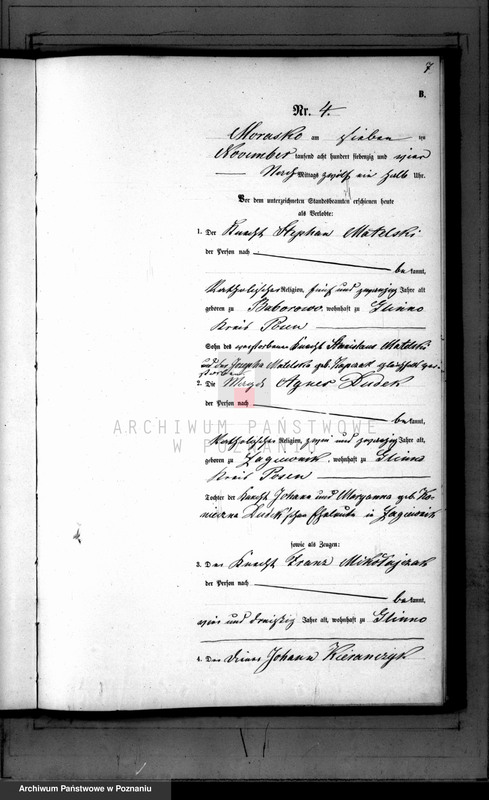 7
B.
Nr. 4.
Morasko am sieben ten
November tausend acht hundert siebenzig und vier
Nachmittags zwölf ein halb Uhr.
Vor dem unterzeichneten Standesbeamten erschienen heute
als Verlobte:
1. Der Knecht Stephan Matelski
der Person nach
bekannt,
katholischer Religion, fünf und zwanzig Jahre alt
geboren zu Baborowo, wohnhaft zu Glinno
Kreis Posen
Sohn des verstorbenen Knecht Stanislaus Matelski
und der Josepha Matelska geb.
2. Die Magd Agnes Dudek
der Person nach
ARCHIWUM PAŃSTWOWE
W POZNANIU
bekannt,
katholischer Religion, zwei und zwanzig Jahre alt,
geboren zu wohnhaft zu Glinno
Kreis Posen
Tochter der Knecht Johann und Maryanna geb.
Dudek'schen Eheleute in
sowie als Zeugen:
3. Der Knecht Franz Mikołajczak
der Person nach
bekannt,
vier und dreißig Jahre alt, wohnhaft zu Glinno
4. Der Diener Johann
Archiwum Państwowe w Poznaniu